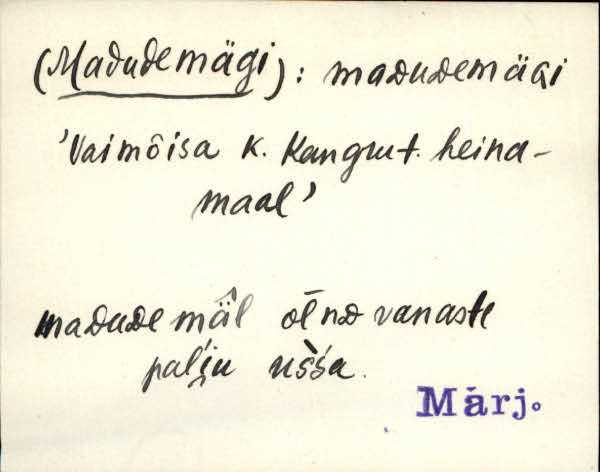 (Madudemägi): maᴅuᴅemäGi
'Vaimõisa k. Kangrut. heina-
maal'
maᴅuᴅe mäl̂ ol̄nᴅ vanaste
palj́u ùšśa.
Märj.